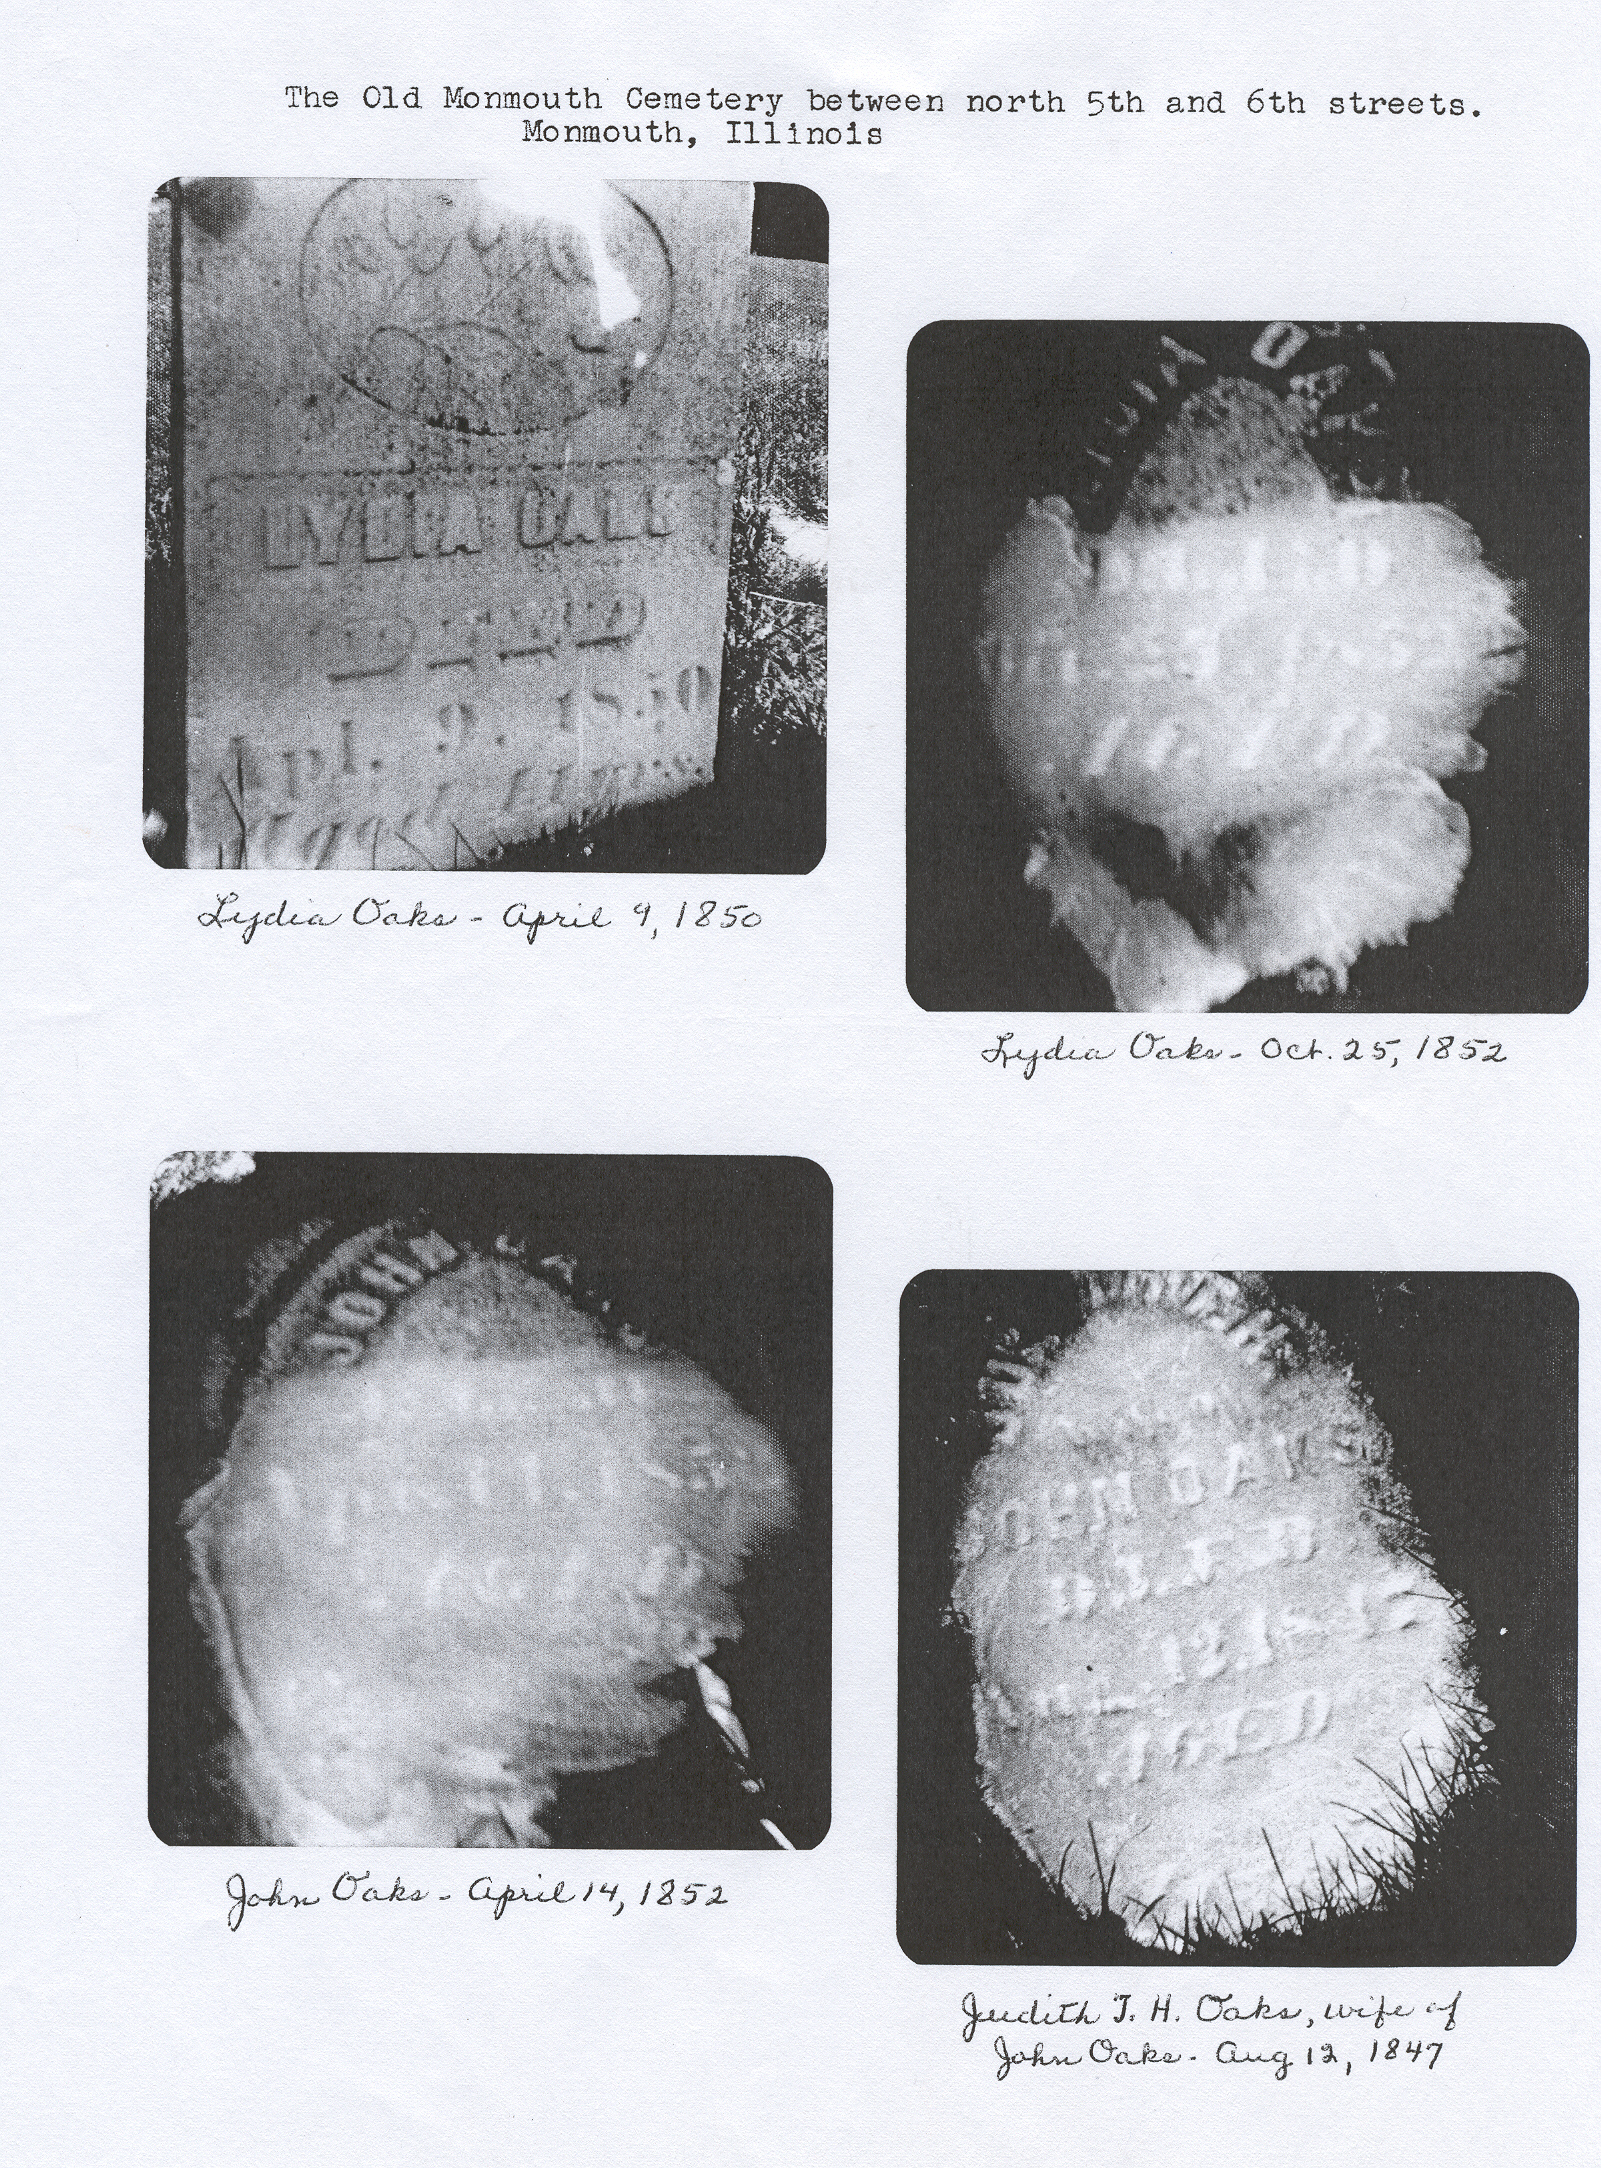 The Old Monmouth Cemetery between north 5th and 6th streets.
Monmouth, Illinois
LYDIA OAKS
DIED
Apl. 9. 1850
Lydia Oaks - April 9, 1850
DIED
Lydia Oaks - Oct. 25, 1852
JOHN OA
APRIL
John Oaks - April 14, 1852
JOHN OAKS
DIED
12. 18
AGED
Judith T. H. Oaks, wife of
John Oaks - Aug 12, 1847